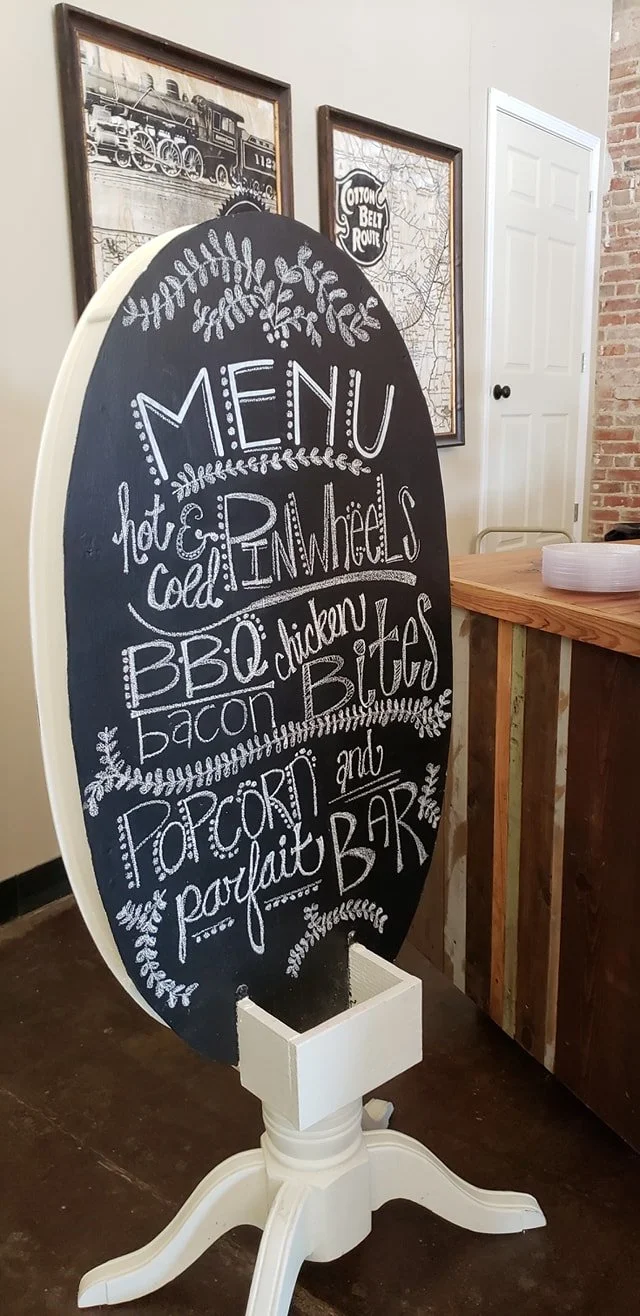 1127
COTTON
BELT
ROUTE
MENU
hot & PINWheeLS
cold
BBQ chicken
bacon BiteS
POPCORN and
parfait BAR